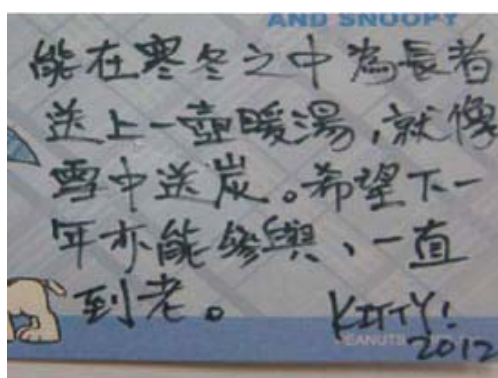 AND SNOOPY
能在寒冬之中為長者
送上一壺暖湯,就像
雪中送炭。希望下一
年亦能參與、一直
到老。 KITTY!
PEANUTS
2012